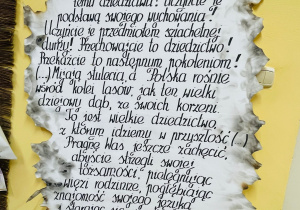 temu dziedzictwu! Uczyńcie je
podstawą swojego wychowania!
Uczyńcie je przedmiotem szlachetnej
dumy! Przechowajcie to dziedzictwo!
Przekażcie to następnym pokoleniom!
(...) Mijają stulecia, a Polska rośnie
wśród kolei losów jak ten wielki
dziejowy dąb, ze swoich korzeni.
To jest wielkie dziedzictwo,
z którym idziemy w przyszłość (...)
Pragnę Was jeszcze zachęcić,
abyście strzegli swojej
tożsamości, pielęgnując
więzi rodzinne, pogłębiając
znajomość swojego języka